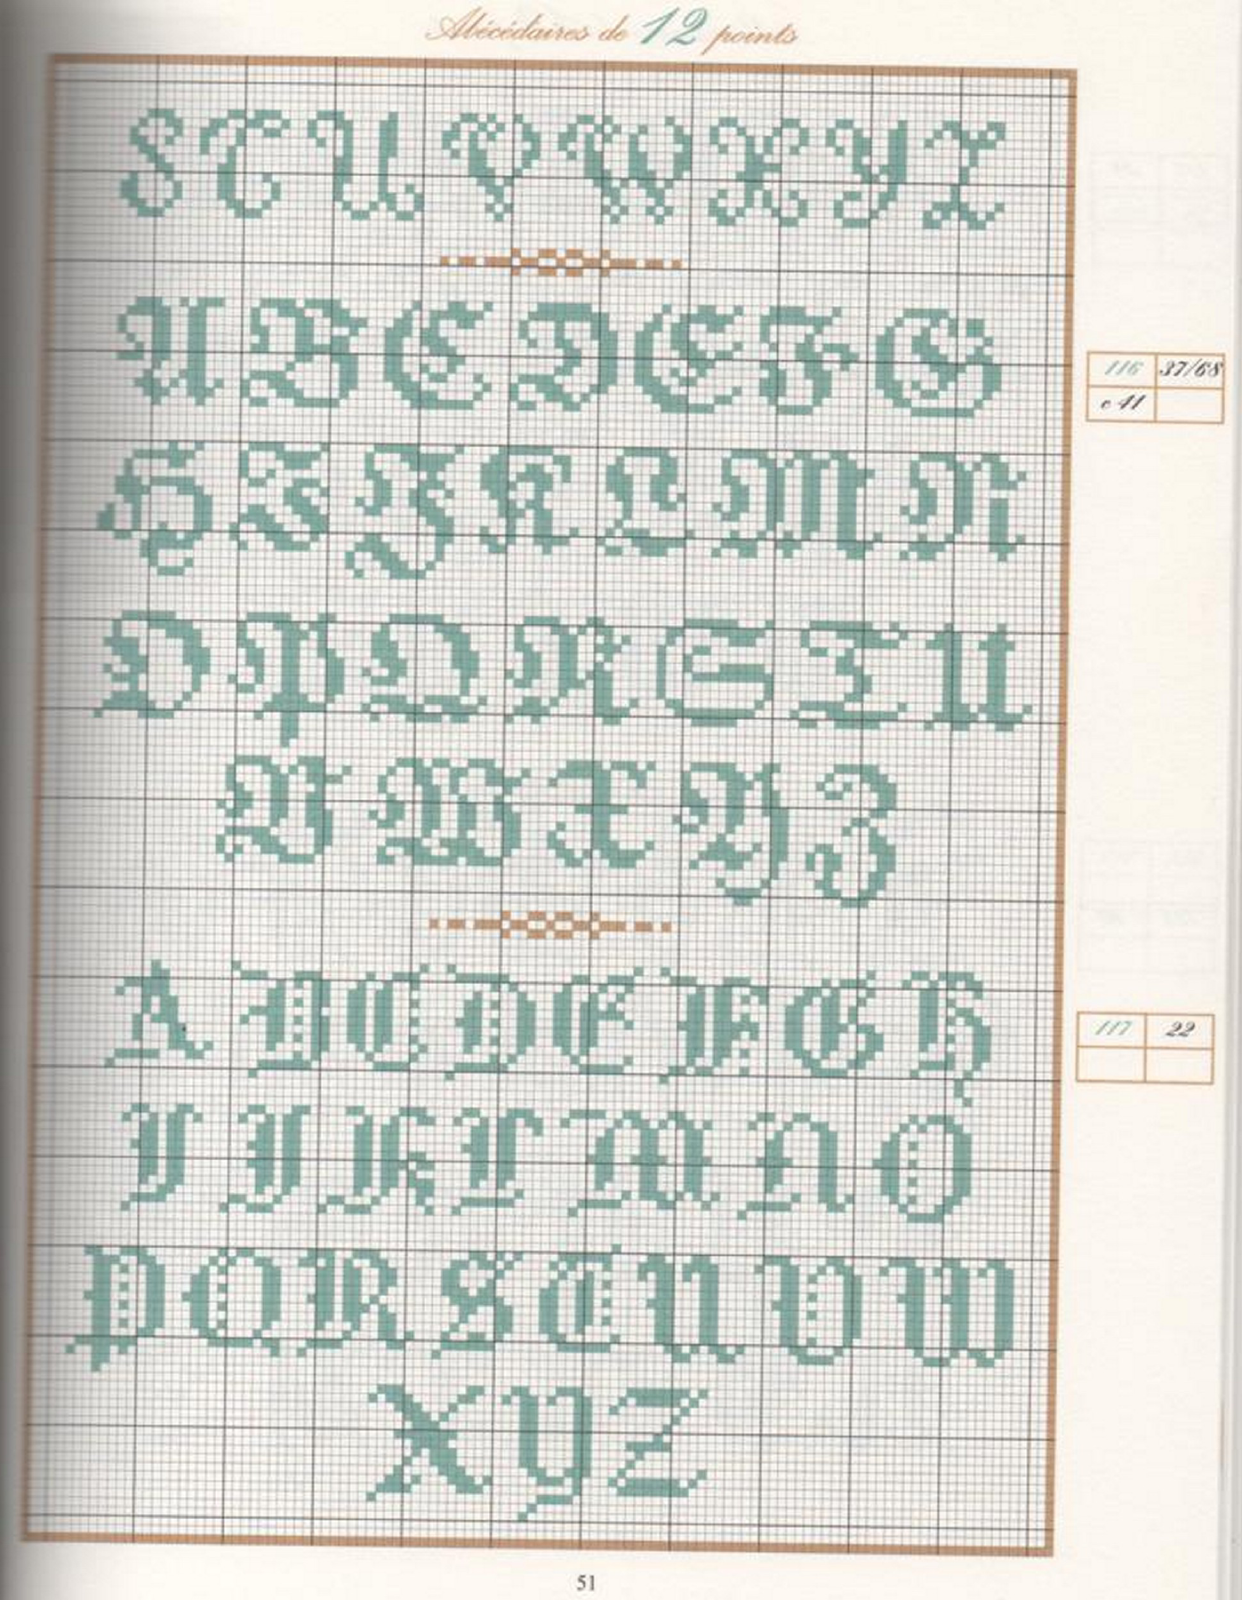 Abécédaires de 12 points
S T U V W X Y Z
A B C D E F G
116 37/68
c 41
H I J K L M N
O P Q R S T U
V W X Y Z
A B C D E F G H
117 22
I J K L M N O
P Q R S T U V W
X Y Z
51